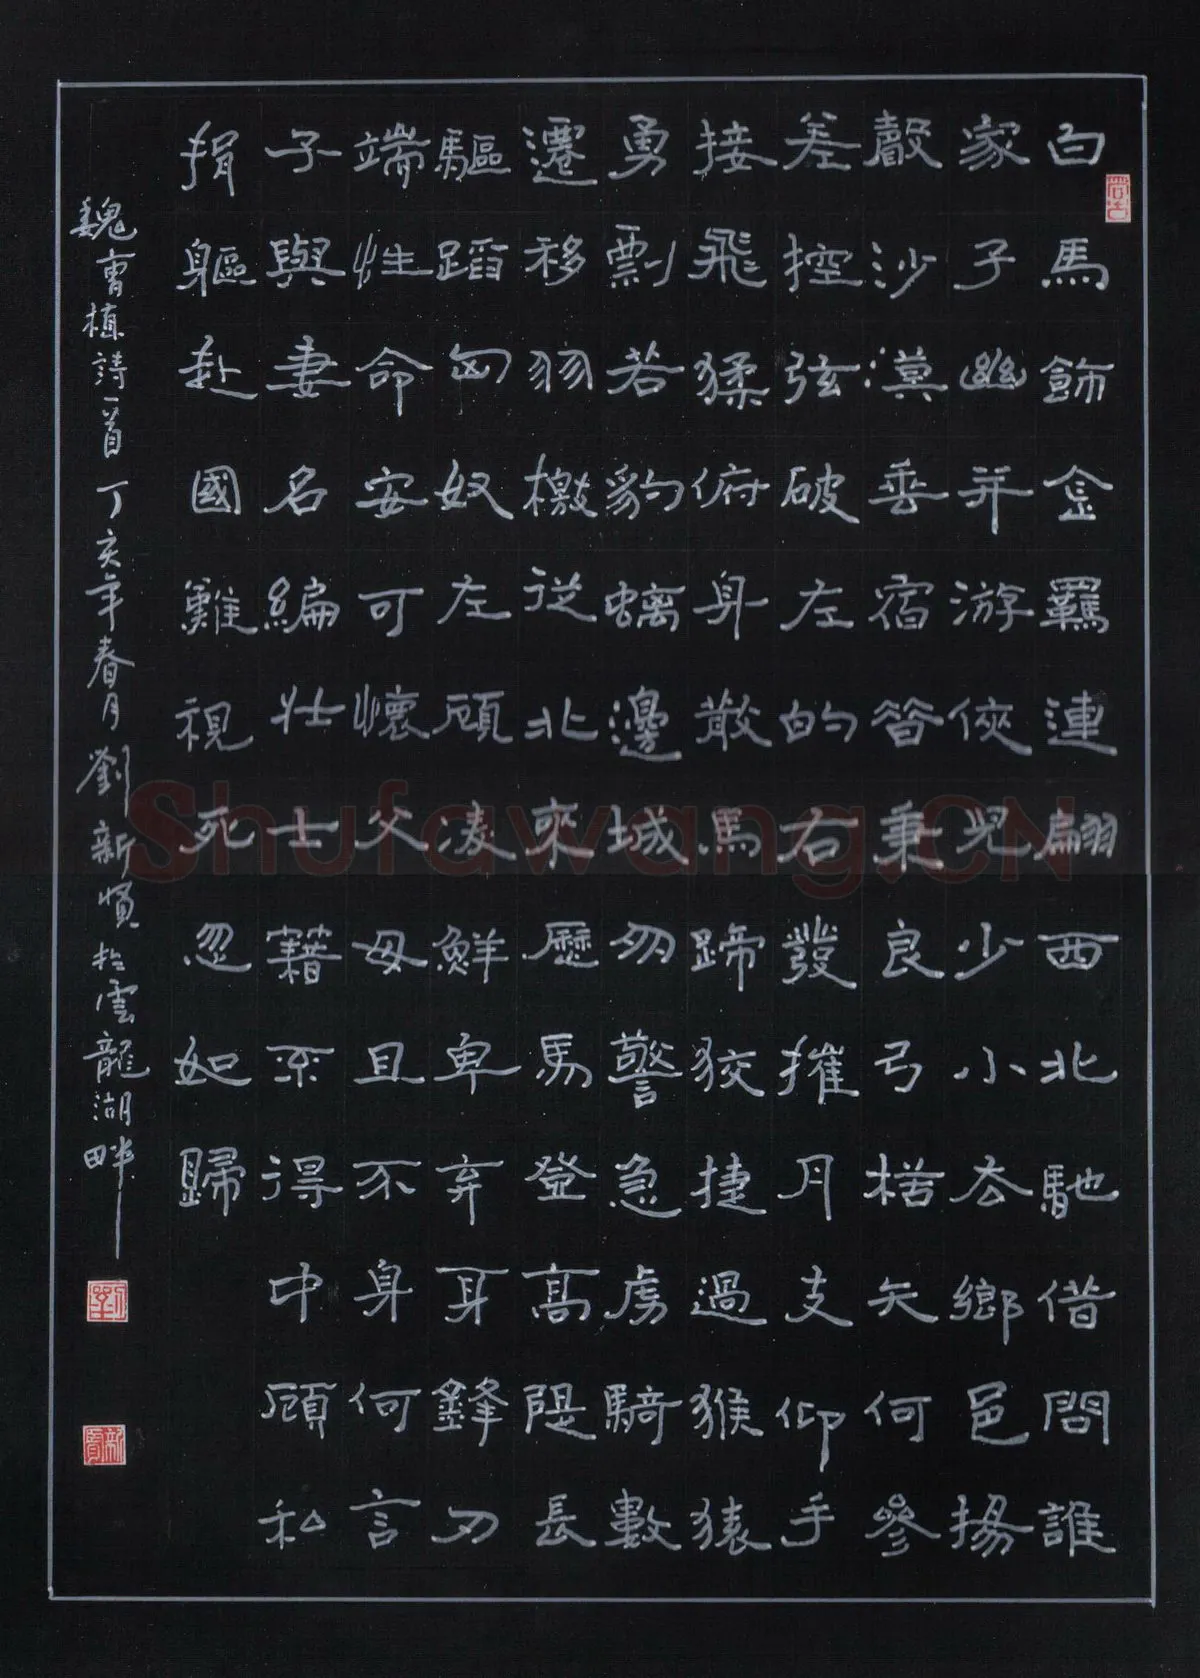 白馬飾金羈連翩西北馳借問誰
家子幽并游俠兒少小去鄉邑揚
聲沙漠垂宿昔秉良弓楛矢何參
差控弦破左的右發摧月支仰手
接飛猱俯身散馬蹄狡捷過猴猿
勇剽若豹螭邊城多警急虜騎數
遷移羽檄從北來厲馬登高隄長
驅蹈匈奴左顧凌鮮卑弃身鋒刃
端性命安可懷父母且不身何言
子與妻名編壯士籍不得中顧私
捐軀赴國難視死忽如歸
魏曹植詩一首 丁亥年春月劉新賢於雲龍湖畔
新賢
Shufawang.CN